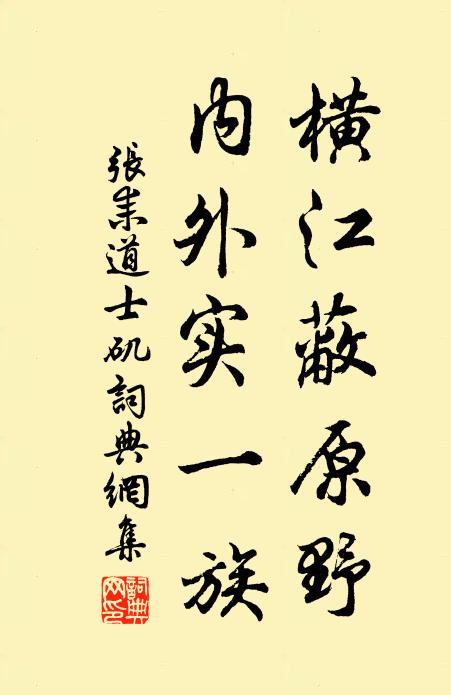 横江蔽原野
内外实一族
張耒道士矶詞典網集
詞典网印